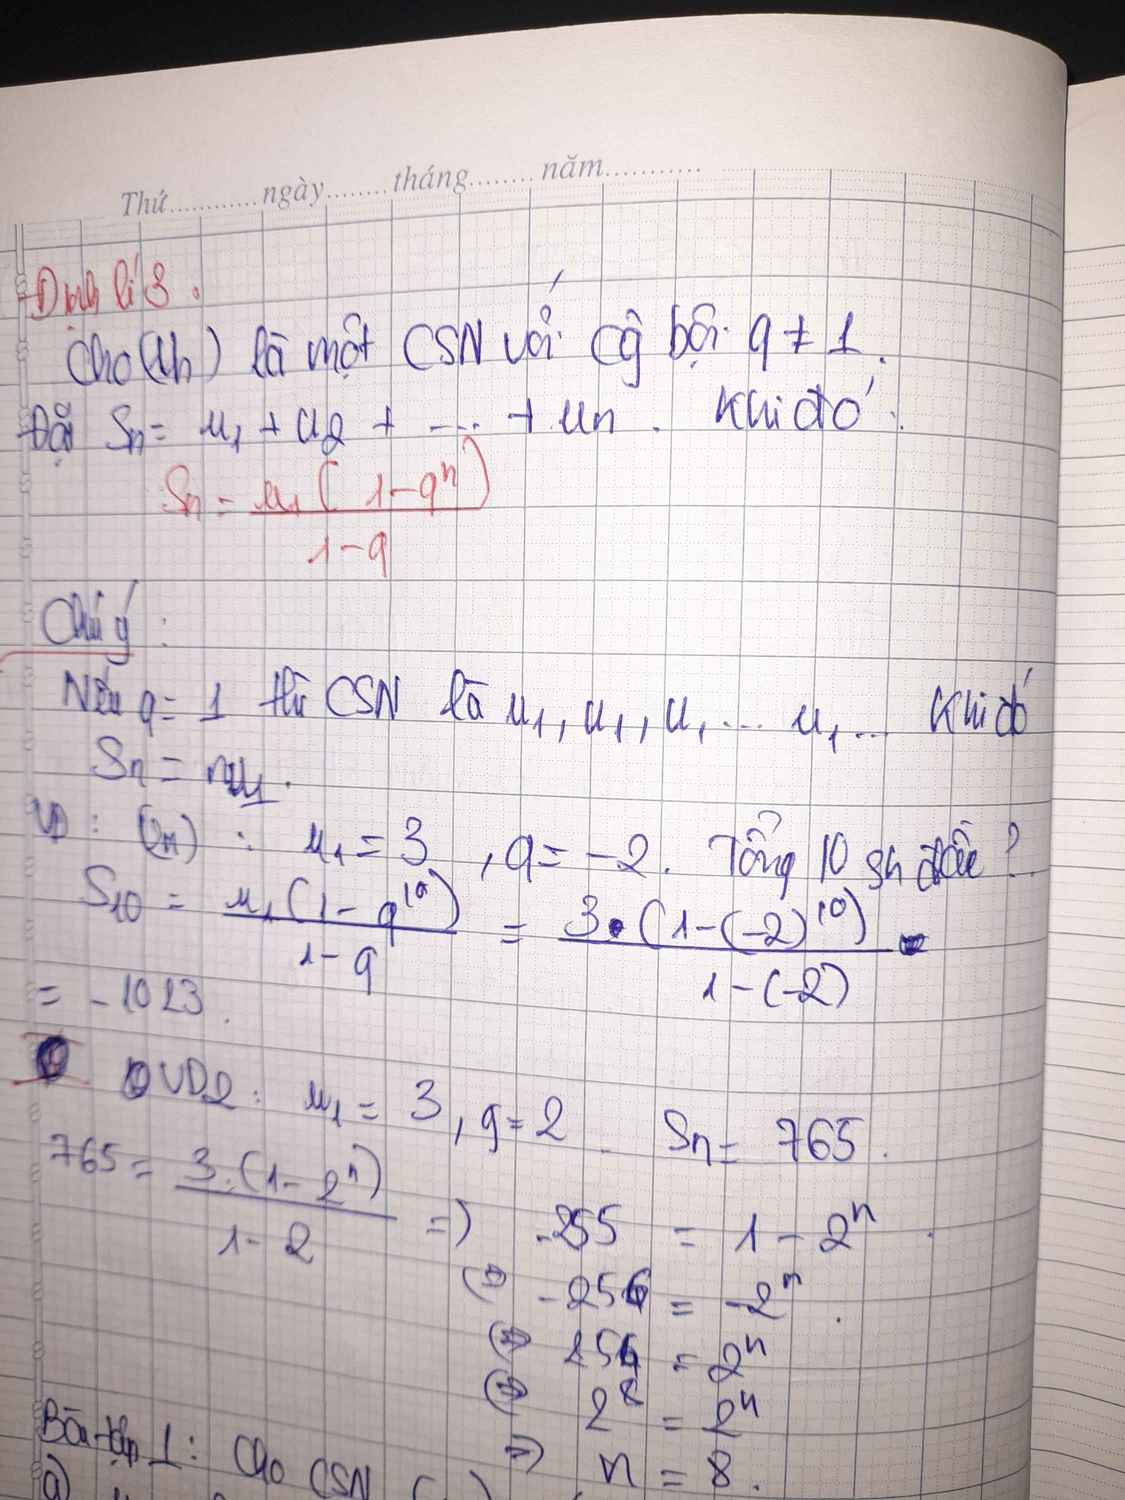 Thứ............ngày........tháng........năm............
Định lí 3.
Cho (Un) là một CSN với Cg bội q ≠ 1.
Đặt Sn = u1 + u2 + .... + un. Khi đó:
Sn = u1 ( 1 - q^n ) / 1 - q
Chú ý:
Nếu q = 1 thì CSN là u1, u1, u1 ... u1 ... Khi đó
Sn = nu1.
VD: (un): u1 = 3, q = -2. Tổng 10 sh đầu?
S10 = u1 (1 - q^10) / 1 - q = 3.(1-(-2)^10) / 1-(-2)
= -1023.
VD2: u1 = 3, q = 2. Sn = 765.
765 = 3.(1 - 2^n) / 1 - 2 => -255 = 1 - 2^n.
<=> -256 = -2^n.
<=> 256 = 2^n
<=> 2^8 = 2^n
=> n = 8.
Bài tập 1: Cho CSN
a)